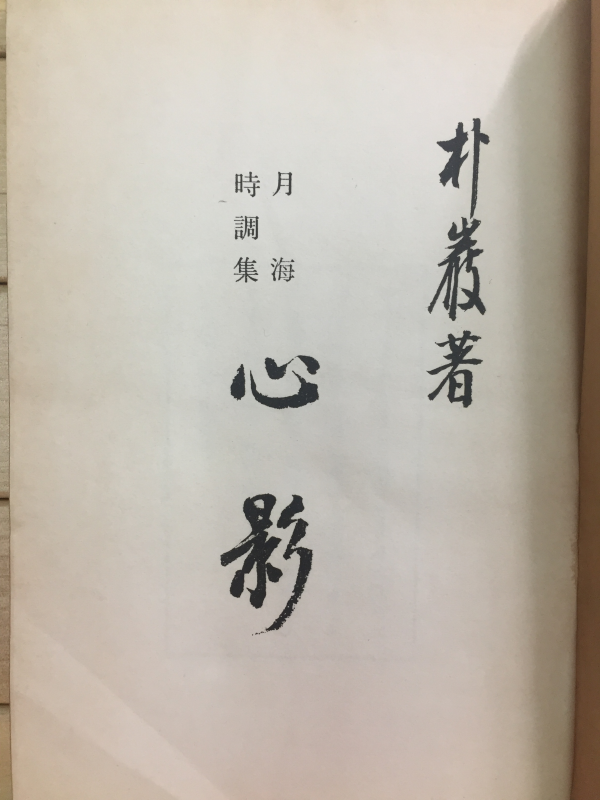 朴巖著
月海
時調集
心影